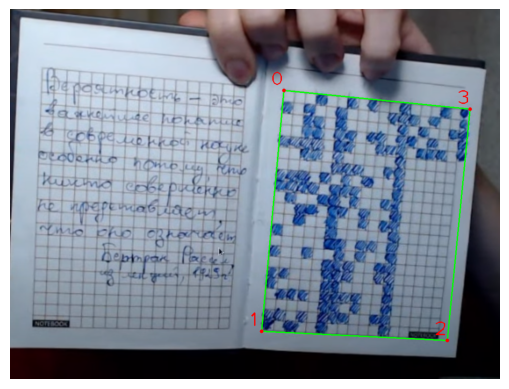 Вероятность – это
важнейшее понятие
в современной науке
особенно потому, что
никто совершенно
не представляет,
что оно означает
Бертран Рассел
из лекции, 1929 г.
NOTEBOOK
NOTEBOOK
0
3
1
2